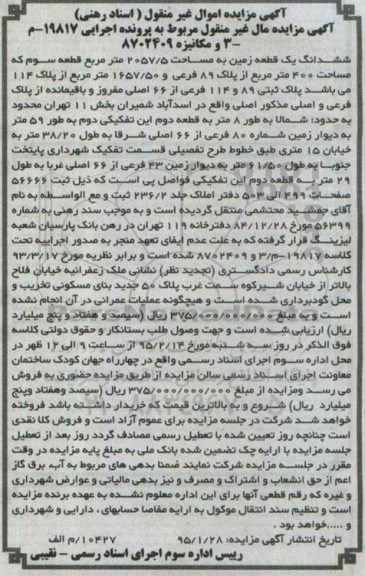 آگهی مزایده اموال غیر منقول ( اسناد رهنی)
آگهی مزایده مال غیر منقول مربوط به پرونده اجرایی ۱۹۸۱۷-م
-۳ و مکانیزه ۸۷۰۲۴۰۹
ششدانگ یک قطعه زمین به مساحت ۲۰۵۷/۵ متر مربع قطعه سوم که
مساحت ۴۰۰ متر مربع از پلاک ۸۹ فرعی و ۱۶۵۷/۵۰ متر مربع از پلاک ۱۱۴
می باشد پلاک ثبتی ۸۹ و ۱۱۴ فرعی از ۶۶ اصلی مفروز و باقیمانده از پلاک
فرعی و اصلی مذکور اصلی واقع در اسدآباد شمیران بخش ۱۱ تهران محدود
به حدود: شمالا به طول ۸ متر به قطعه دوم این تفکیکی دوم به طول ۵۹ متر
به دیوار زمین شماره ۸۰ فرعی از ۶۶ اصلی شرقا به طول ۳۸/۲۰ متر به
خیابان ۱۵ متری طبق خطوط طرح تفصیلی قسمت تفکیک شهرداری پایتخت
جنوبا به طول ۶۱/۵۰ متر به دیوار زمین ۴۳ فرعی از ۶۶ اصلی غربا به طول
۲۹ متر به قطعه دوم این تفکیکی فواصل پی است که ذیل ثبت ۵۶۶۶۶
صفحات ۲۹۹ الی ۵۰۳ دفتر املاک جلد ۲۳۶/۲ ثبت و مع الواسطه به نام
آقای جمشید محتشمی منتقل گردیده است و به موجب سند رهنی به شماره
۵۶۳۹۹ مورخ ۸۴/۱۲/۲۸ دفترخانه ۱۱۹ تهران در رهن بانک پارسیان شعبه
لیزینگ قرار گرفته که به علت عدم ایفای تعهد منجر به صدور اجراییه تحت
کلاسه ۱۹۸۱۷-م/۳ و ۸۷۰۲۴۰۹ شده است و برابر نظریه مورخ ۹۳/۳/۱۷
کارشناس رسمی دادگستری (تجدید نظر) نشانی ملک زعفرانیه خیابان فلاح
بالاتر از خیابان شیرکوه سمت غرب پلاک ۵۰ جدید بنای مسکونی تخریب و
محل گودبرداری شده است و هیچگونه عملیات عمرانی در آن انجام نشده
است و به مبلغ ۳۷۵/۰۰۰/۰۰۰/۰۰۰ ریال (سیصد و هفتاد و پنج میلیارد
ریال) ارزیابی شده است و جهت وصول طلب بستانکار و حقوق دولتی کلاسه
فوق الذکر در روز سه شنبه مورخ ۹۵/۲/۱۴ از ساعت ۹ الی ۱۲ ظهر در
محل اداره سوم اجرای اسناد رسمی واقع در چهارراه جهان کودک ساختمان
معاونت اجرای اسناد رسمی سالن مزایده از طریق مزایده حضوری به فروش
می رسد ومزایده از مبلغ ۳۷۵/۰۰۰/۰۰۰/۰۰۰ ریال (سیصد وهفتاد وپنج
میلیارد ریال) شروع و به بالاترین قیمت که خریدار داشته باشد فروخته
خواهد شد شرکت در جلسه مزایده برای عموم آزاد است و فروش کلا نقدی
است چنانچه روز تعیین شده با تعطیل رسمی مصادف گردد روز بعد از تعطیل
جلسه مزایده با ارایه چک تضمین شده بانک ملی به مبلغ پایه مزایده در وقت
مقرر در جلسه مزایده شرکت نمایند ضمنا بدهی های مربوط به آب، برق گاز
اعم از حق انشعاب و اشتراک و مصرف و نیز بدهی مالیاتی و عوارض شهرداری
و غیره که رقم قطعی آنها برای این اداره معلوم نشده به عهده برنده مزایده
است و تنظیم سند انتقال موکول به ارایه مفاصا حسابهای ، دارایی و شهرداری
و .....خواهد بود .
تاریخ انتشار آگهی مزایده: ۹۵/۱/۲۸ ۱۰۴۲۷/م الف
رییس اداره سوم اجرای اسناد رسمی - نقیبی